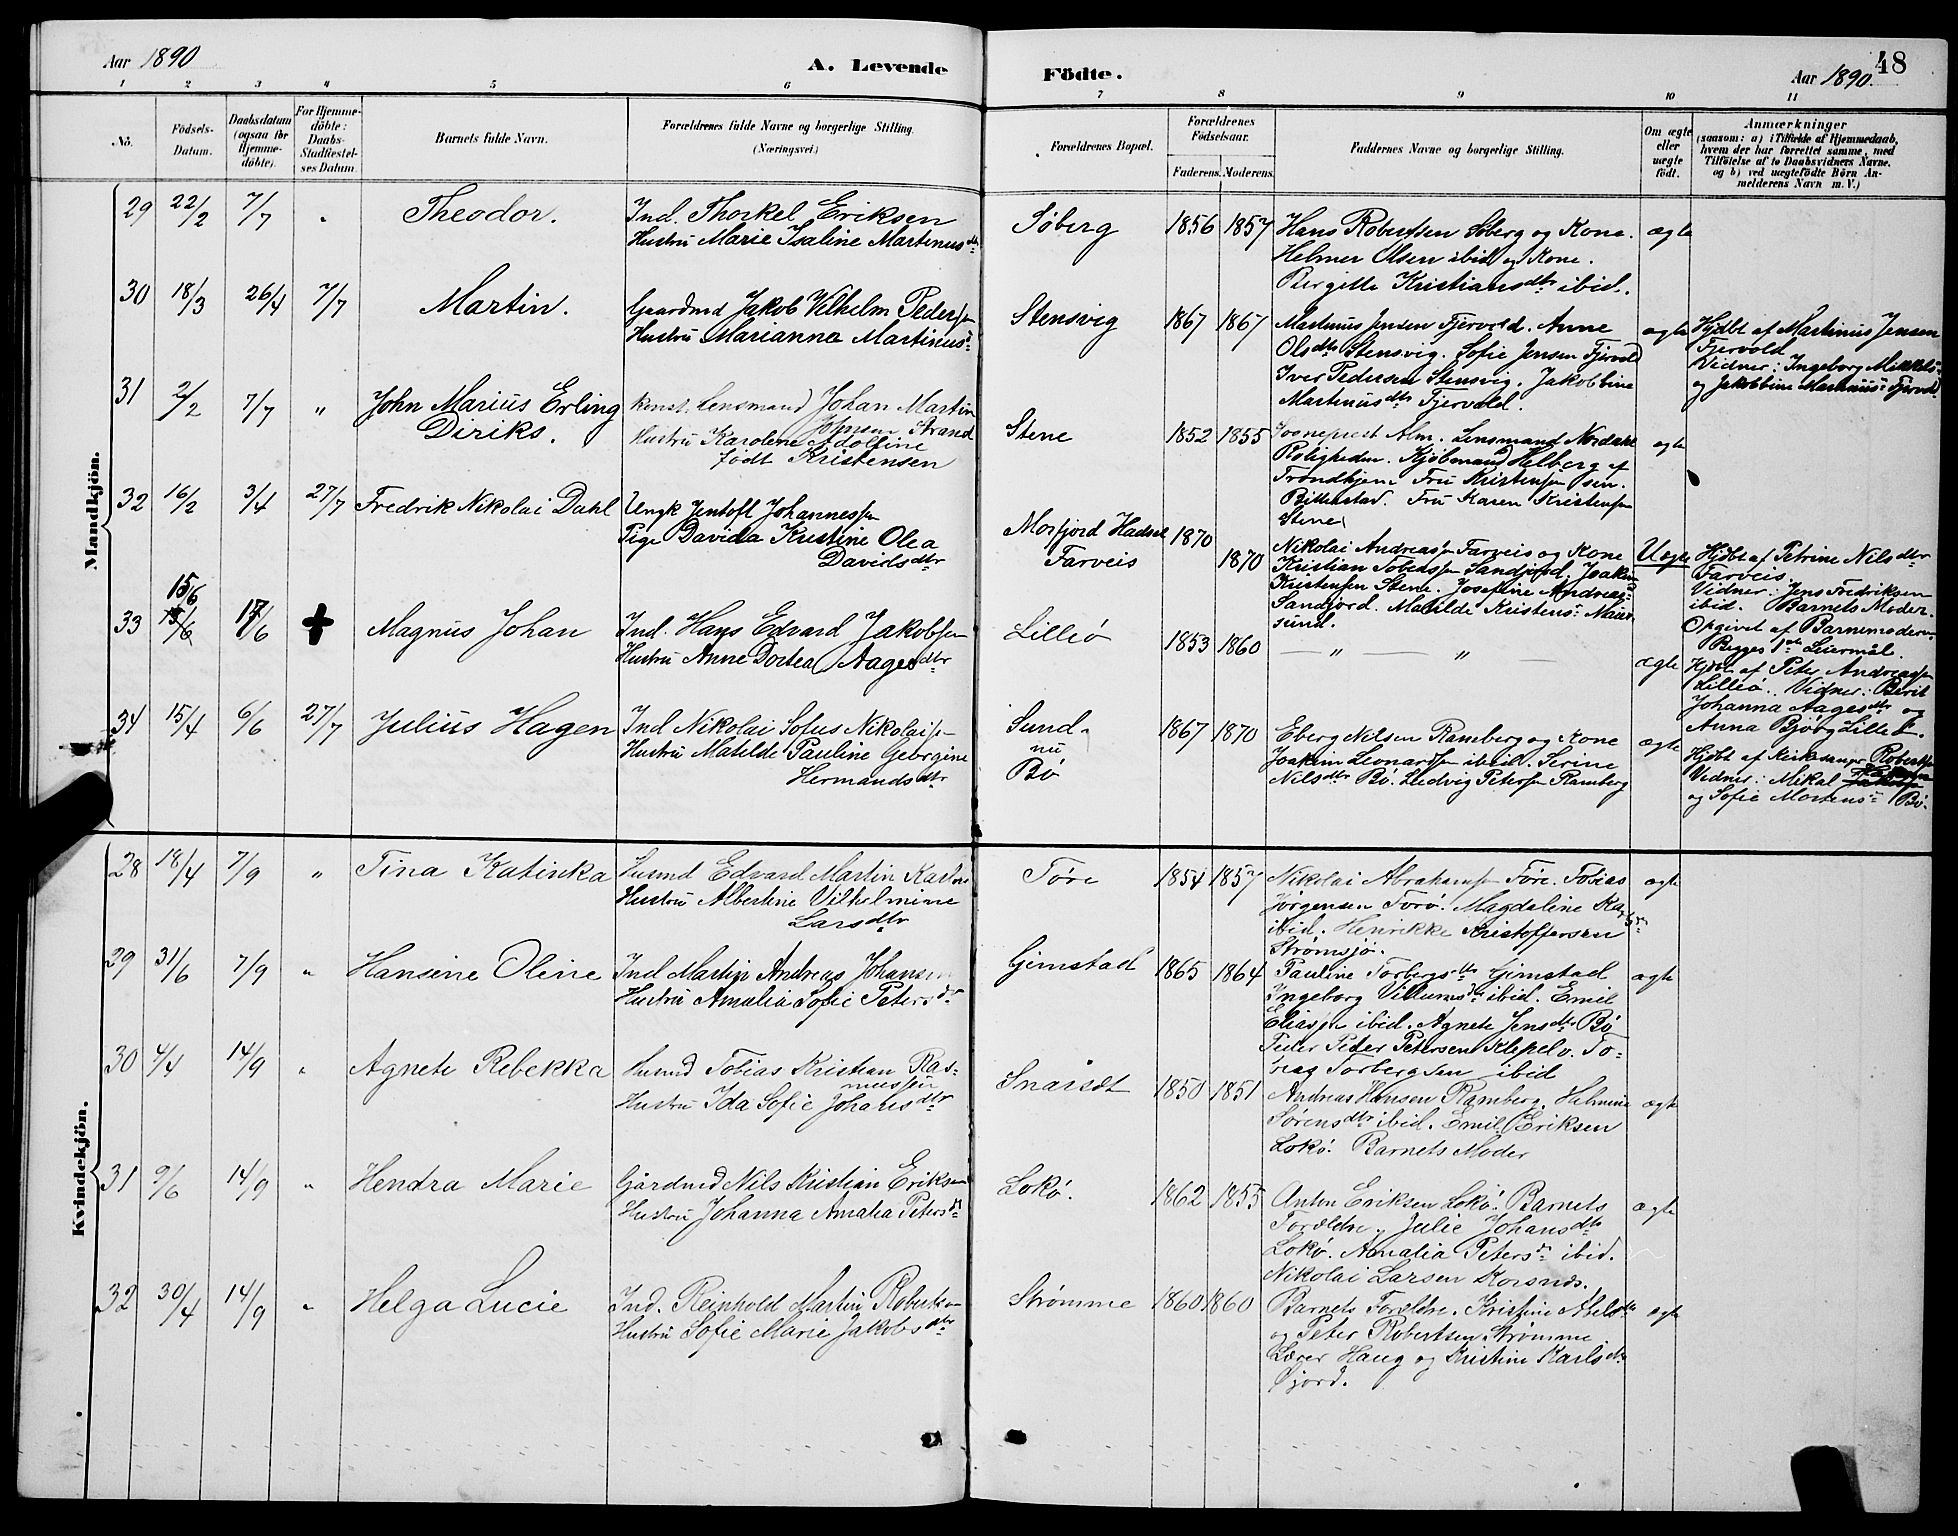 Aar 1890
A. Levende
Födte.
Aar 1890.
48
1 2 3 4 5 6 7 8 9 10 11
No.
Födsels-
Datum.
Daabsdatum
(ogsaa for
Hjemme-
döbte).
For Hjemme-
döbte:
Daabs-
Stadfæstel-
ses Datum
Barnets fulde Navn.
Forældrenes fulde Navne og borgerlige Stilling.
(Næringsvei.)
Forældrenes Bopæl.
Forældrenes
Födselsaar.
Faderens. Moderens.
Faddernes Navne og borgerlige Stilling.
Om ægte
eller
uægte
født.
Anmærkninger
(saasom: a) i Tilfælde af Hjemmedaab,
hvem der har forrettet samme, med
Tilföielse af to Daabsvidners Navne.
og b) ved uægtefödte Börn An-
melderens Navn m. V.)
Mandkjön.
29 22/2 7/7 " Theodor.
Ind. Thorkel Eriksen
Hustru Marie Isaline Martinusdtr
Søberg 1856 1857
Hans Robertsen Søberg og Kone.
Helmer Olsen ibid og Kone.
Birgitte Kristiansdtr ibid.
ægte
30 18/3 26/4 7/7 Martin.
Gaardmd Jakob Vilhelm Pedersen
Hustru Marianna Martinusd
Stensvig 1867 1867
Martinus Jensen Fjervold. Anne
Olsdtr Stensvig. Sofie Jensen Fjervold
Iver Pedersen Stensvig. Jakobbine
Martinusdtr Fjervold.
ægte
Hjdbt af Martinus Jensen
Fjervold
Vidner: Ingeborg Mikkels
og Jakobbine Martinus Fjervold
31 2/2 7/7 " John Marius Erling
Diriks.
Konst. Lensmand Johan Martin
Johnsen Strand
Hustru Karolene Adolfine
født Kristensen
Stene 1852 1855
Sogneprest Alm. Lensmand Nordahl
Roligheden. Kjøbmand Helberg af
Trondhjem Fru Kristensen sen.
Bitterstad. Fru Karen Kristensen
Stene
ægte
32 16/2 3/4 27/7 Fredrik Nikolai Dahl
Ungk Jentoft Johannessen
Pige Davida Kristine Olea
Davidsdtr
Morfjord Hadsel 1870
Farveis 1870
Nikolai Andreassen Farveis og Kone
Kristian Tobiassen Sandfjord. Joakim
Kristensen Stene. Josefine Andreas
Sandfjord. Matilde Kristens
sund.
Uægte
Hjdbt af Petrine Nilsdtr
Farveis.
Vidner: Jens Fredriksen
ibid. Barnets Moder.
Opgivet af Barnemoderen
Begges 1ste Leiermål.
33 15/6 17/6 Magnus Johan
Ind. Hans Edvard Jakobsen
Hustru Anne Dortea Aagesdtr
Lilleø 1853 1860
— " — " —
ægte
Hjdbt af Peter Andreassen
Lilleø. Vidner: Berit
Johanna Aagesdtr og
Anna Bjöbg Lilleø.
34 15/4 6/6 27/7 Julius Hagen
Ind Nikolai Sofus Nikolaisen
Hustru Matilde Pauline Georgine
Hermandsdtr
Sund.
nu
Bø
1867 1870
Eberg Nilsen Ramberg og Kone
Joakim Leonardsen ibid. Serine
Nilsdtr Bø. Ludvig Petersen Ramberg
ægte
Hjdbt af Kirkesanger Robertsen
Vidner: Mikal
og Sofie Mortens Bø.
Kvindekjön.
28 18/4 7/9 " Tina Katinka
Husmd Edvard Martin Karlsen
Hustru Albertine Vilhelmine
Larsdtr
Føre 1854 1857
Nikolai Abrahamsen Føre. Tobias
Jørgensen Førø. Magdaline Karlsdtr
ibid. Henrikke Kristoffersen
Strømsjø.
ægte
29 31/6 7/9 " Hansine Oline
Ind Martin Andreas Johansen
Hustru Amalia Sofie Petersdtr
Gimstad 1865 1864
Pauline Torbergsdtr Gimstad
Ingeborg Villumsdtr ibid. Emil
Eliassen ibid. Agnete Jensdtr Bø
Peder Peder Petersen Klepelv. To-
rias Torbergsen ibid
ægte
30 4/4 14/9 " Agnete Rebekka
Husmd Tobias Kristian Ras-
mussen
Hustru Ida Sofie Johansdtr
Snarset 1850 1851
Andreas Hansen Ramberg. Helmine
Sørensdtr ibid. Emil Eriksen
Lokø. Barnets Moder
ægte
31 9/6 14/9 " Hendra Marie
Gårdmd Nils Kristian Eriksen
Hustru Johanna Amalia Petersdr
Lokø. 1862 1855
Anton Eriksen Lokø. Barnets
Forældre, Julie Johansdtr
Lokø. Amalia Petersdr ibid.
Nikolai Larsen Korsnes.
ægte
32 30/4 14/9 " Helga Lucie
Ind. Reinhold Martin Robertsen
Hustru Sofie Marie Jakobsdtr
Strømme 1860 1860
Barnets Forældre. Kristine Abelsdtr
og Peter Robertsen Strømme.
Lærer Haug og Kristine Karlsdtr
Øjord.
ægte